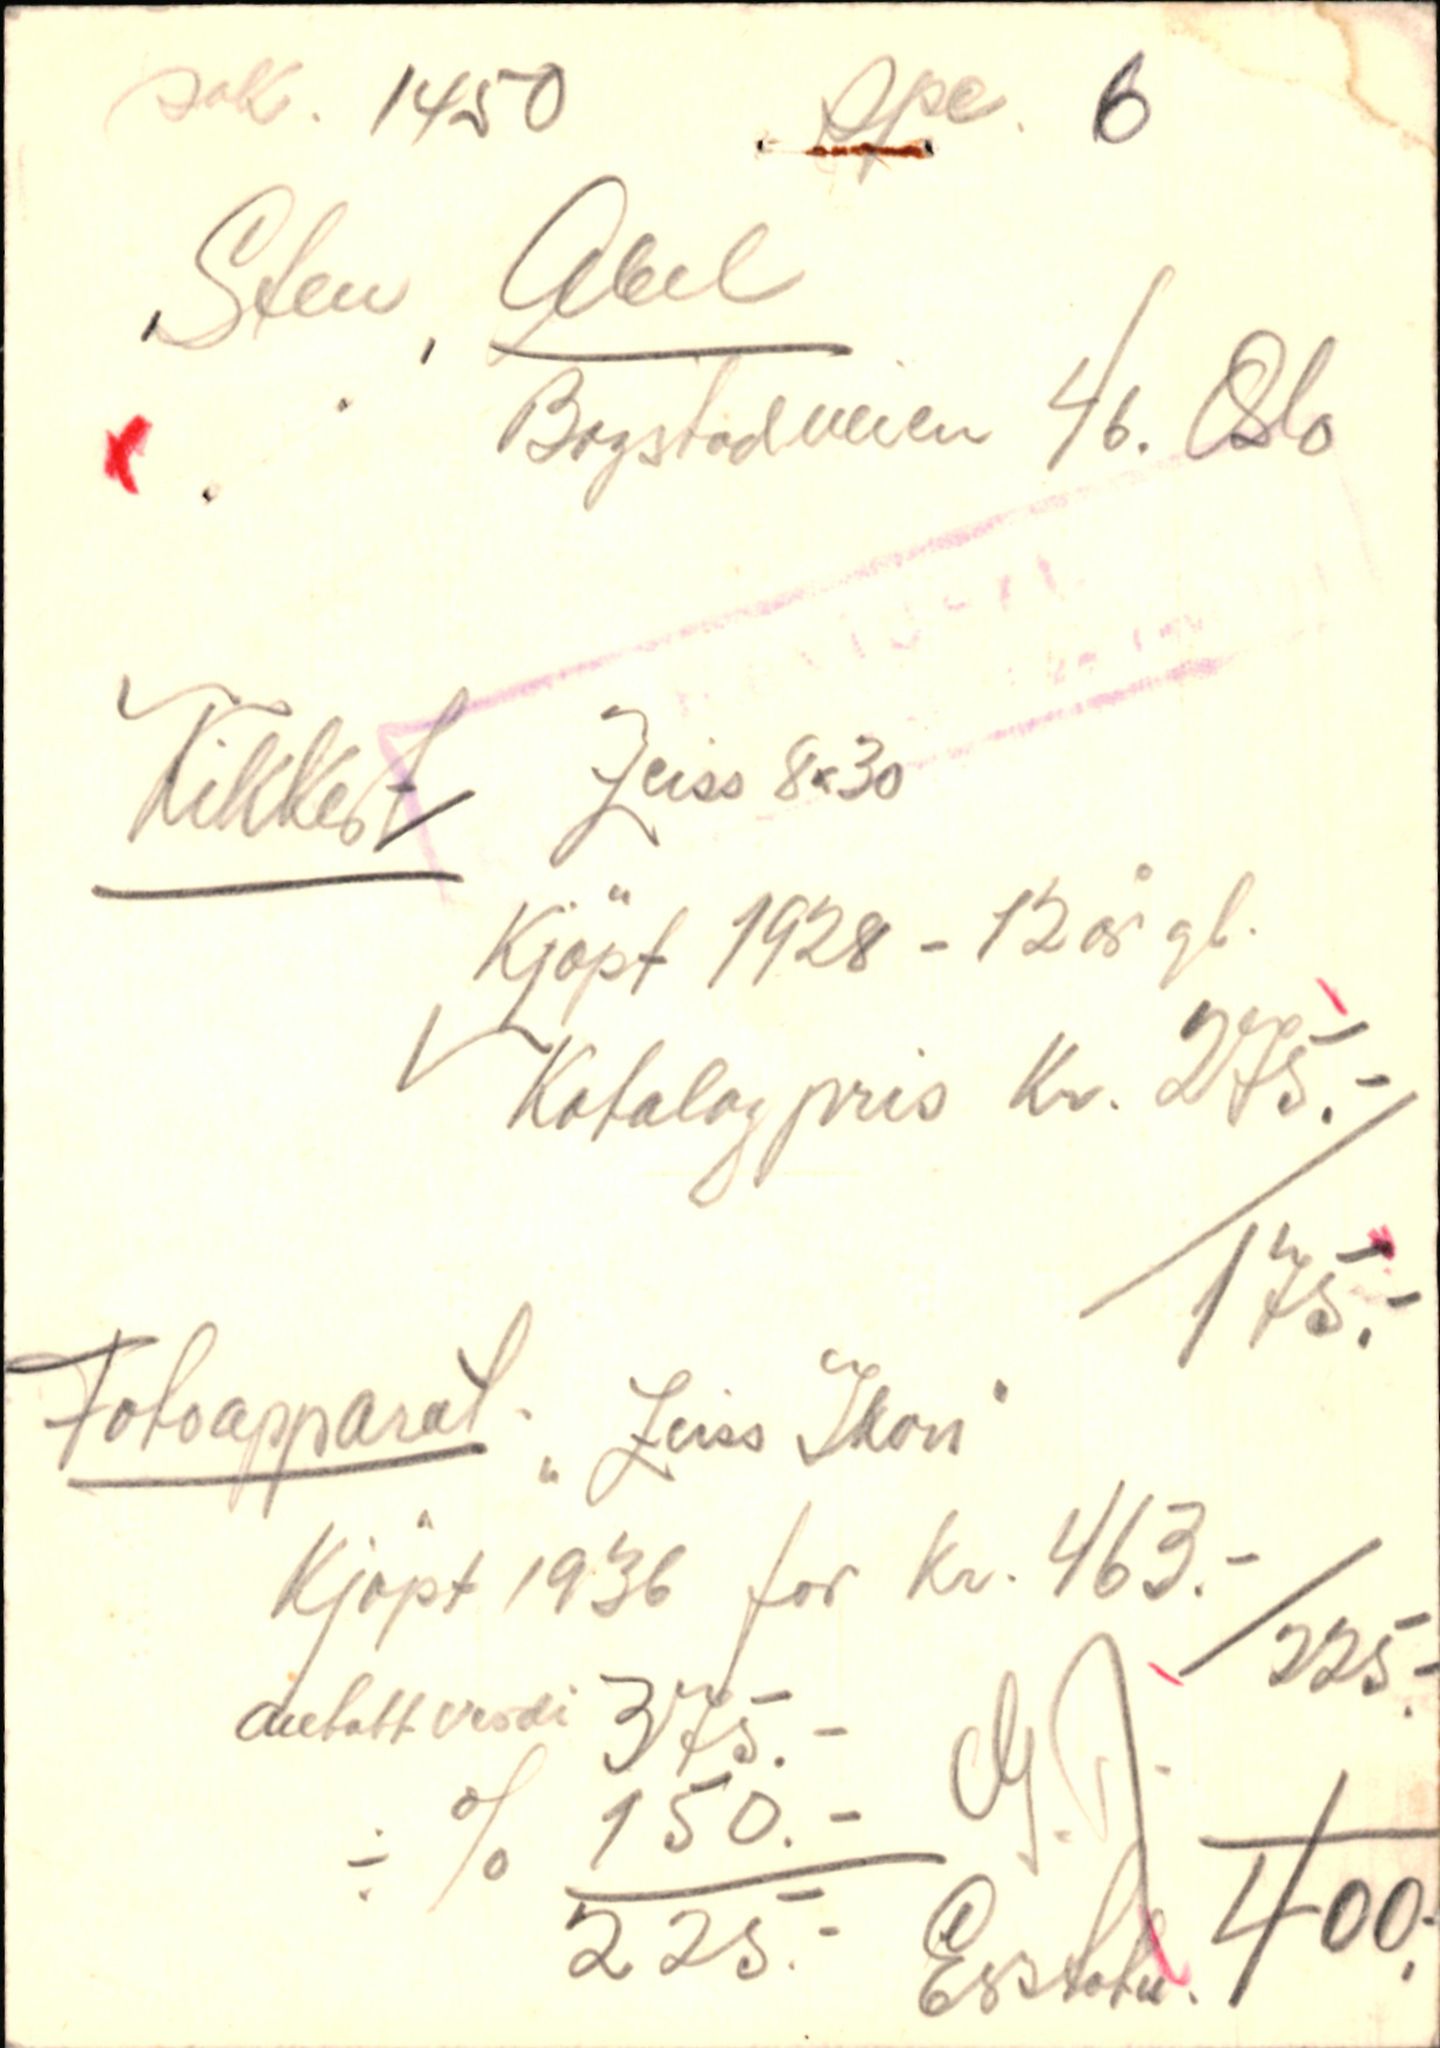 sak. 1450 spe. 6
Sten, Abel
Bogstadveien 46. Oslo
Kikkert Zeiss 8x30
Kjöpt 1928 - 12 år gl.
Katalogpris Kr. 275.-
175.-
Fotoapparat. „Zeiss Ikon"
Kjöpt 1936 for kr. 463.-
225.-
antatt verdi 375.-
÷ % 150.-
225.-
Erstatn. 400.-